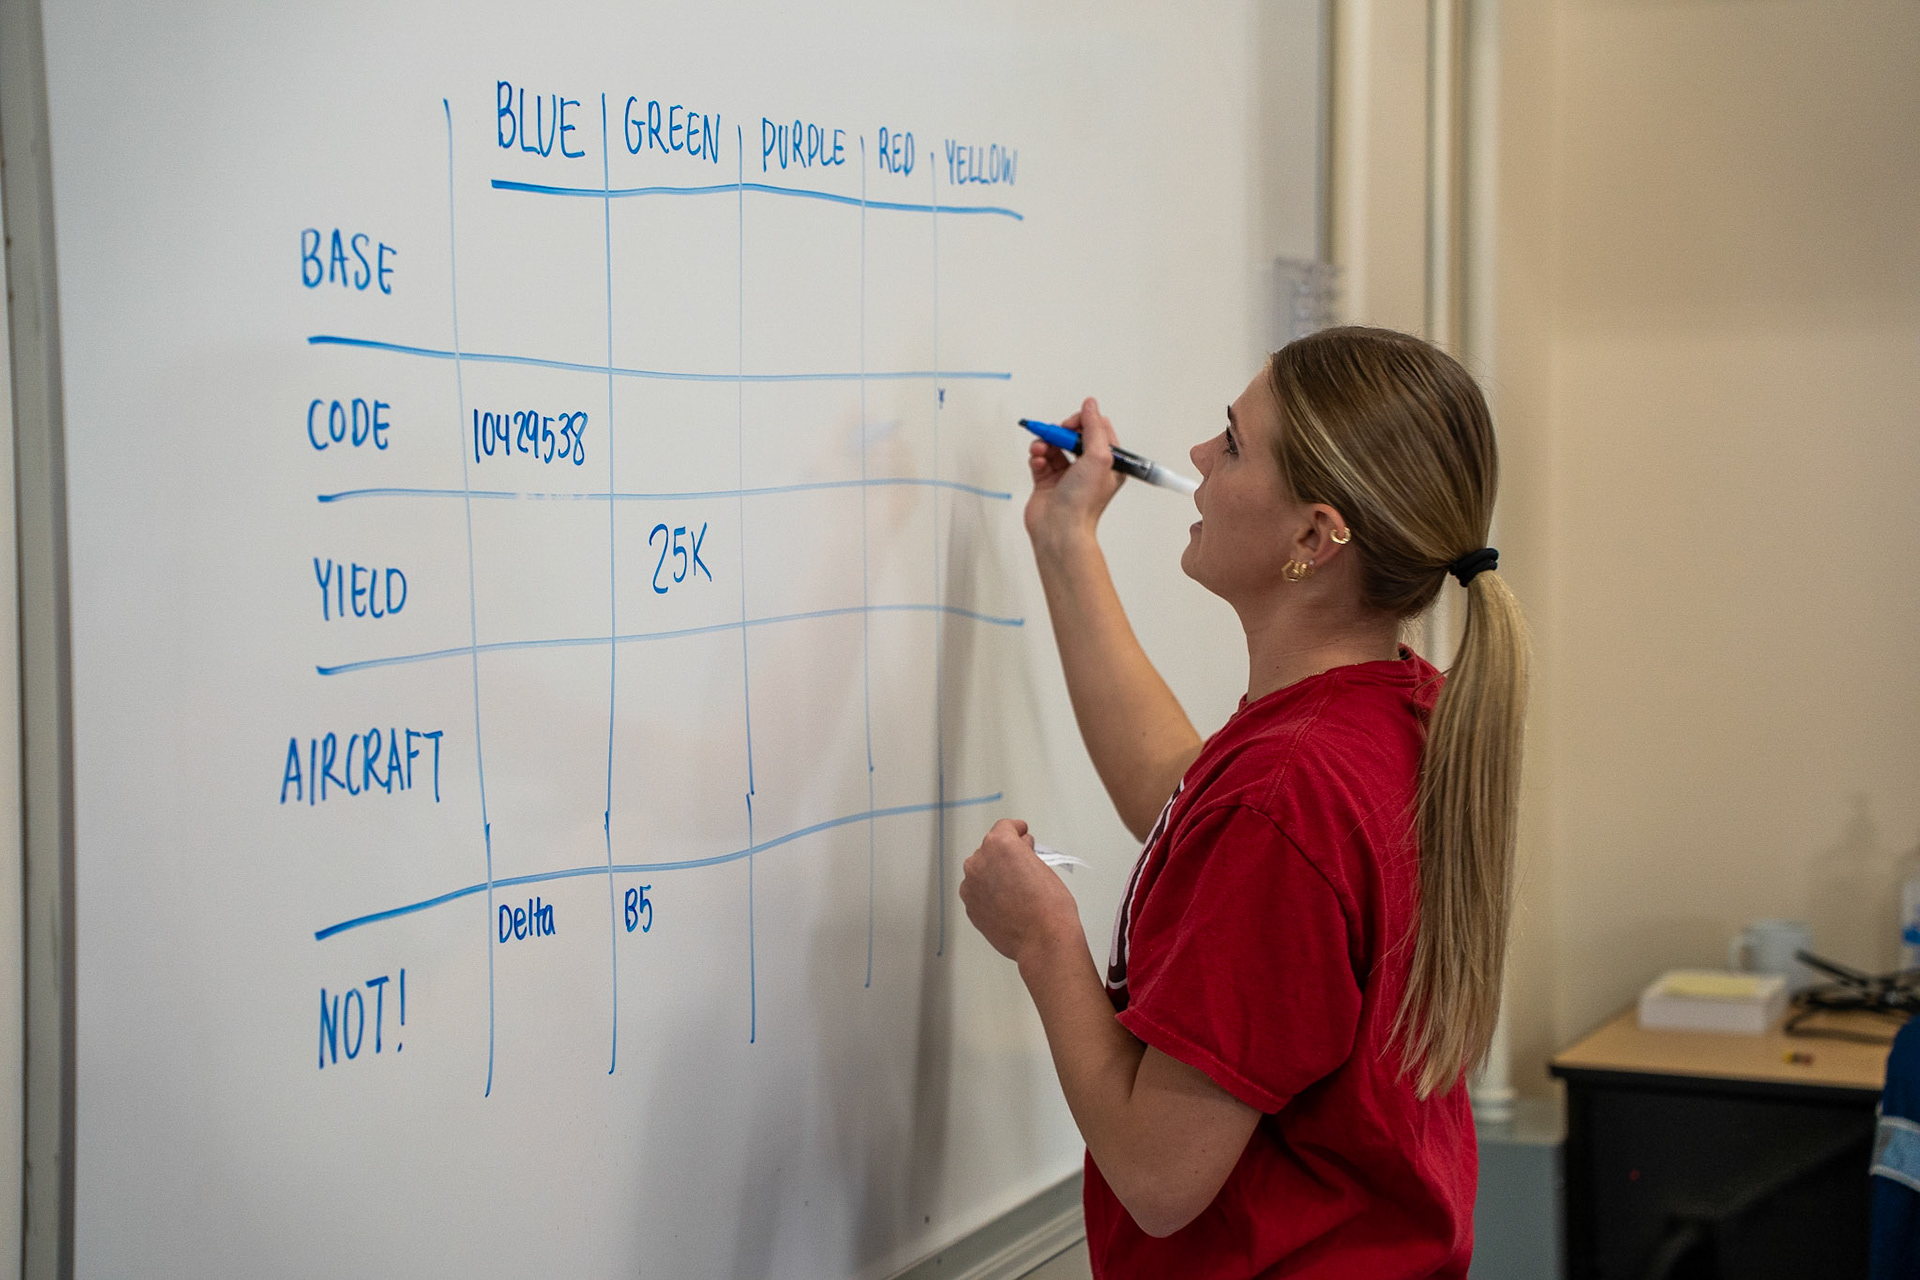 BLUE GREEN PURPLE RED YELLOW
BASE
CODE 10429538
YIELD 25K
AIRCRAFT
Delta B5
NOT!